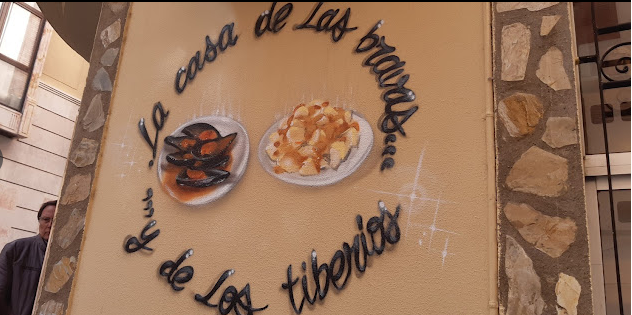 La casa de Las bravas...
y de Los tiberios